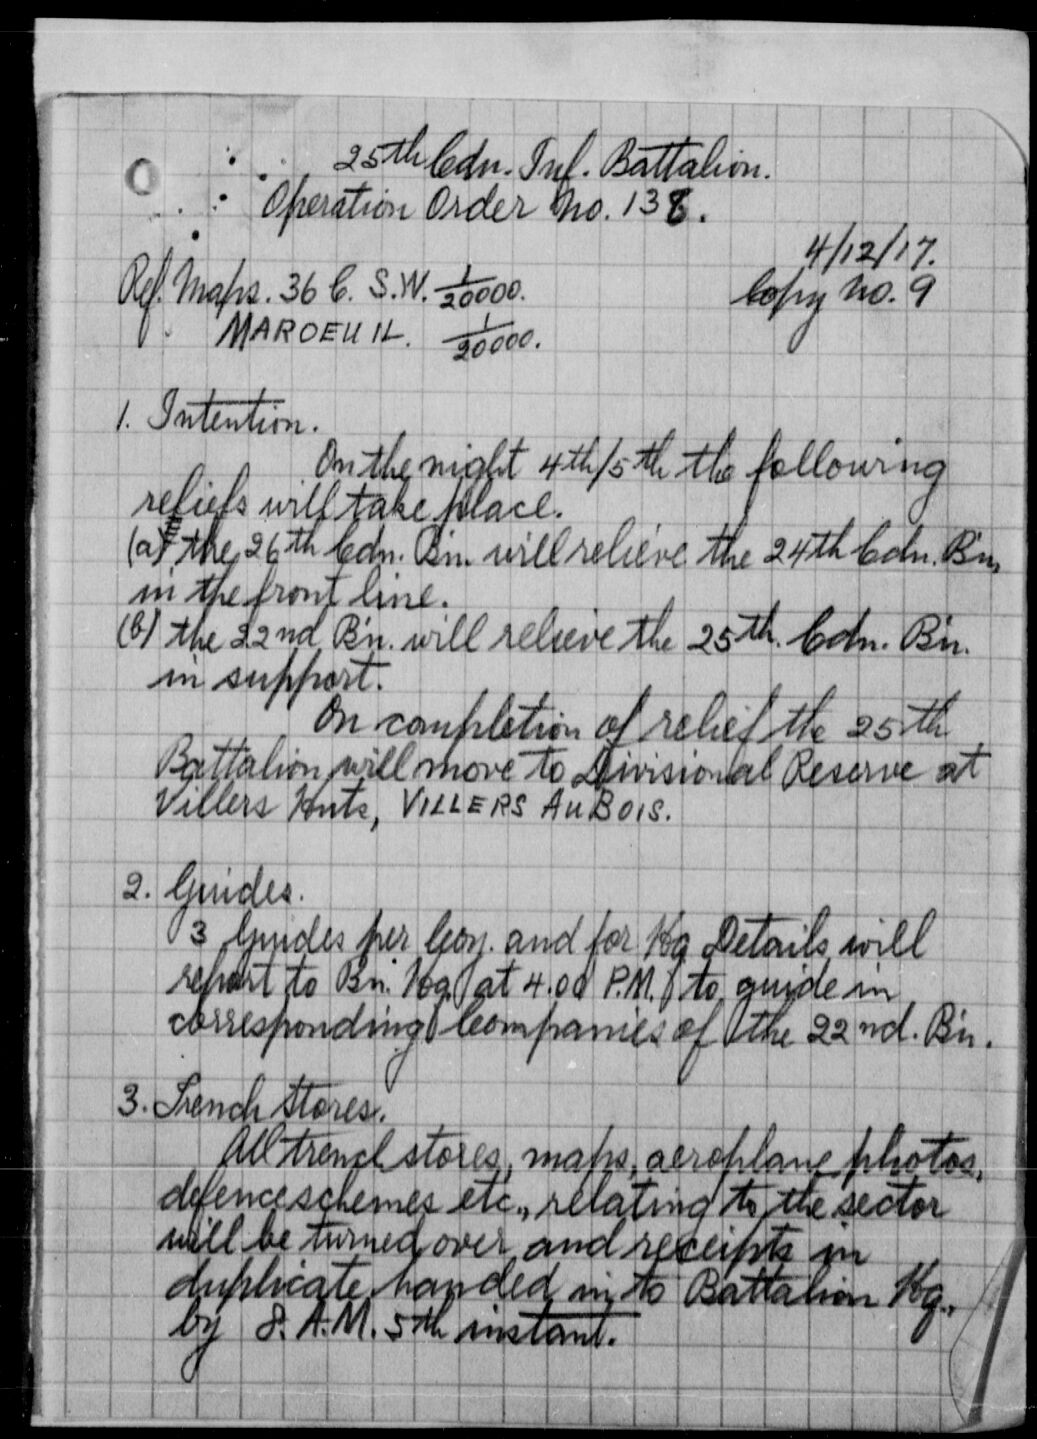 25th Cdn. Inf. Battalion.
Operation Order No. 138.
4/12/17.
Ref. Maps. 36 C. S.W. 1/20000.
Copy No. 9
MAROEUIL. 1/20000.
1. Intention.
On the night 4th/5th the following
reliefs will take place.
(a) the 26th Cdn. Bn. will relieve the 24th Cdn. B'n,
in the front line.
(b) the 22nd B'n. will relieve the 25th. Cdn. B'n.
in support.
On completion of relief the 25th
Battalion will move to Divisional Reserve at
Villers Huts, VILLERS AU BOIS.
2. Guides.
3 Guides per Coy. and for Hq Details will
report to Bn. Hq. at 4.00 P.M. to guide in
corresponding Companies of the 22nd. B'n.
3. Trench Stores.
All trench stores, maps, aeroplane photos,
defence schemes etc., relating to the sector
will be turned over and receipts in
duplicate handed in to Battalion Hq.,
by 8. A.M. 5th instant.